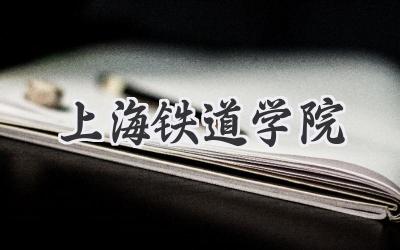 上海铁道学院